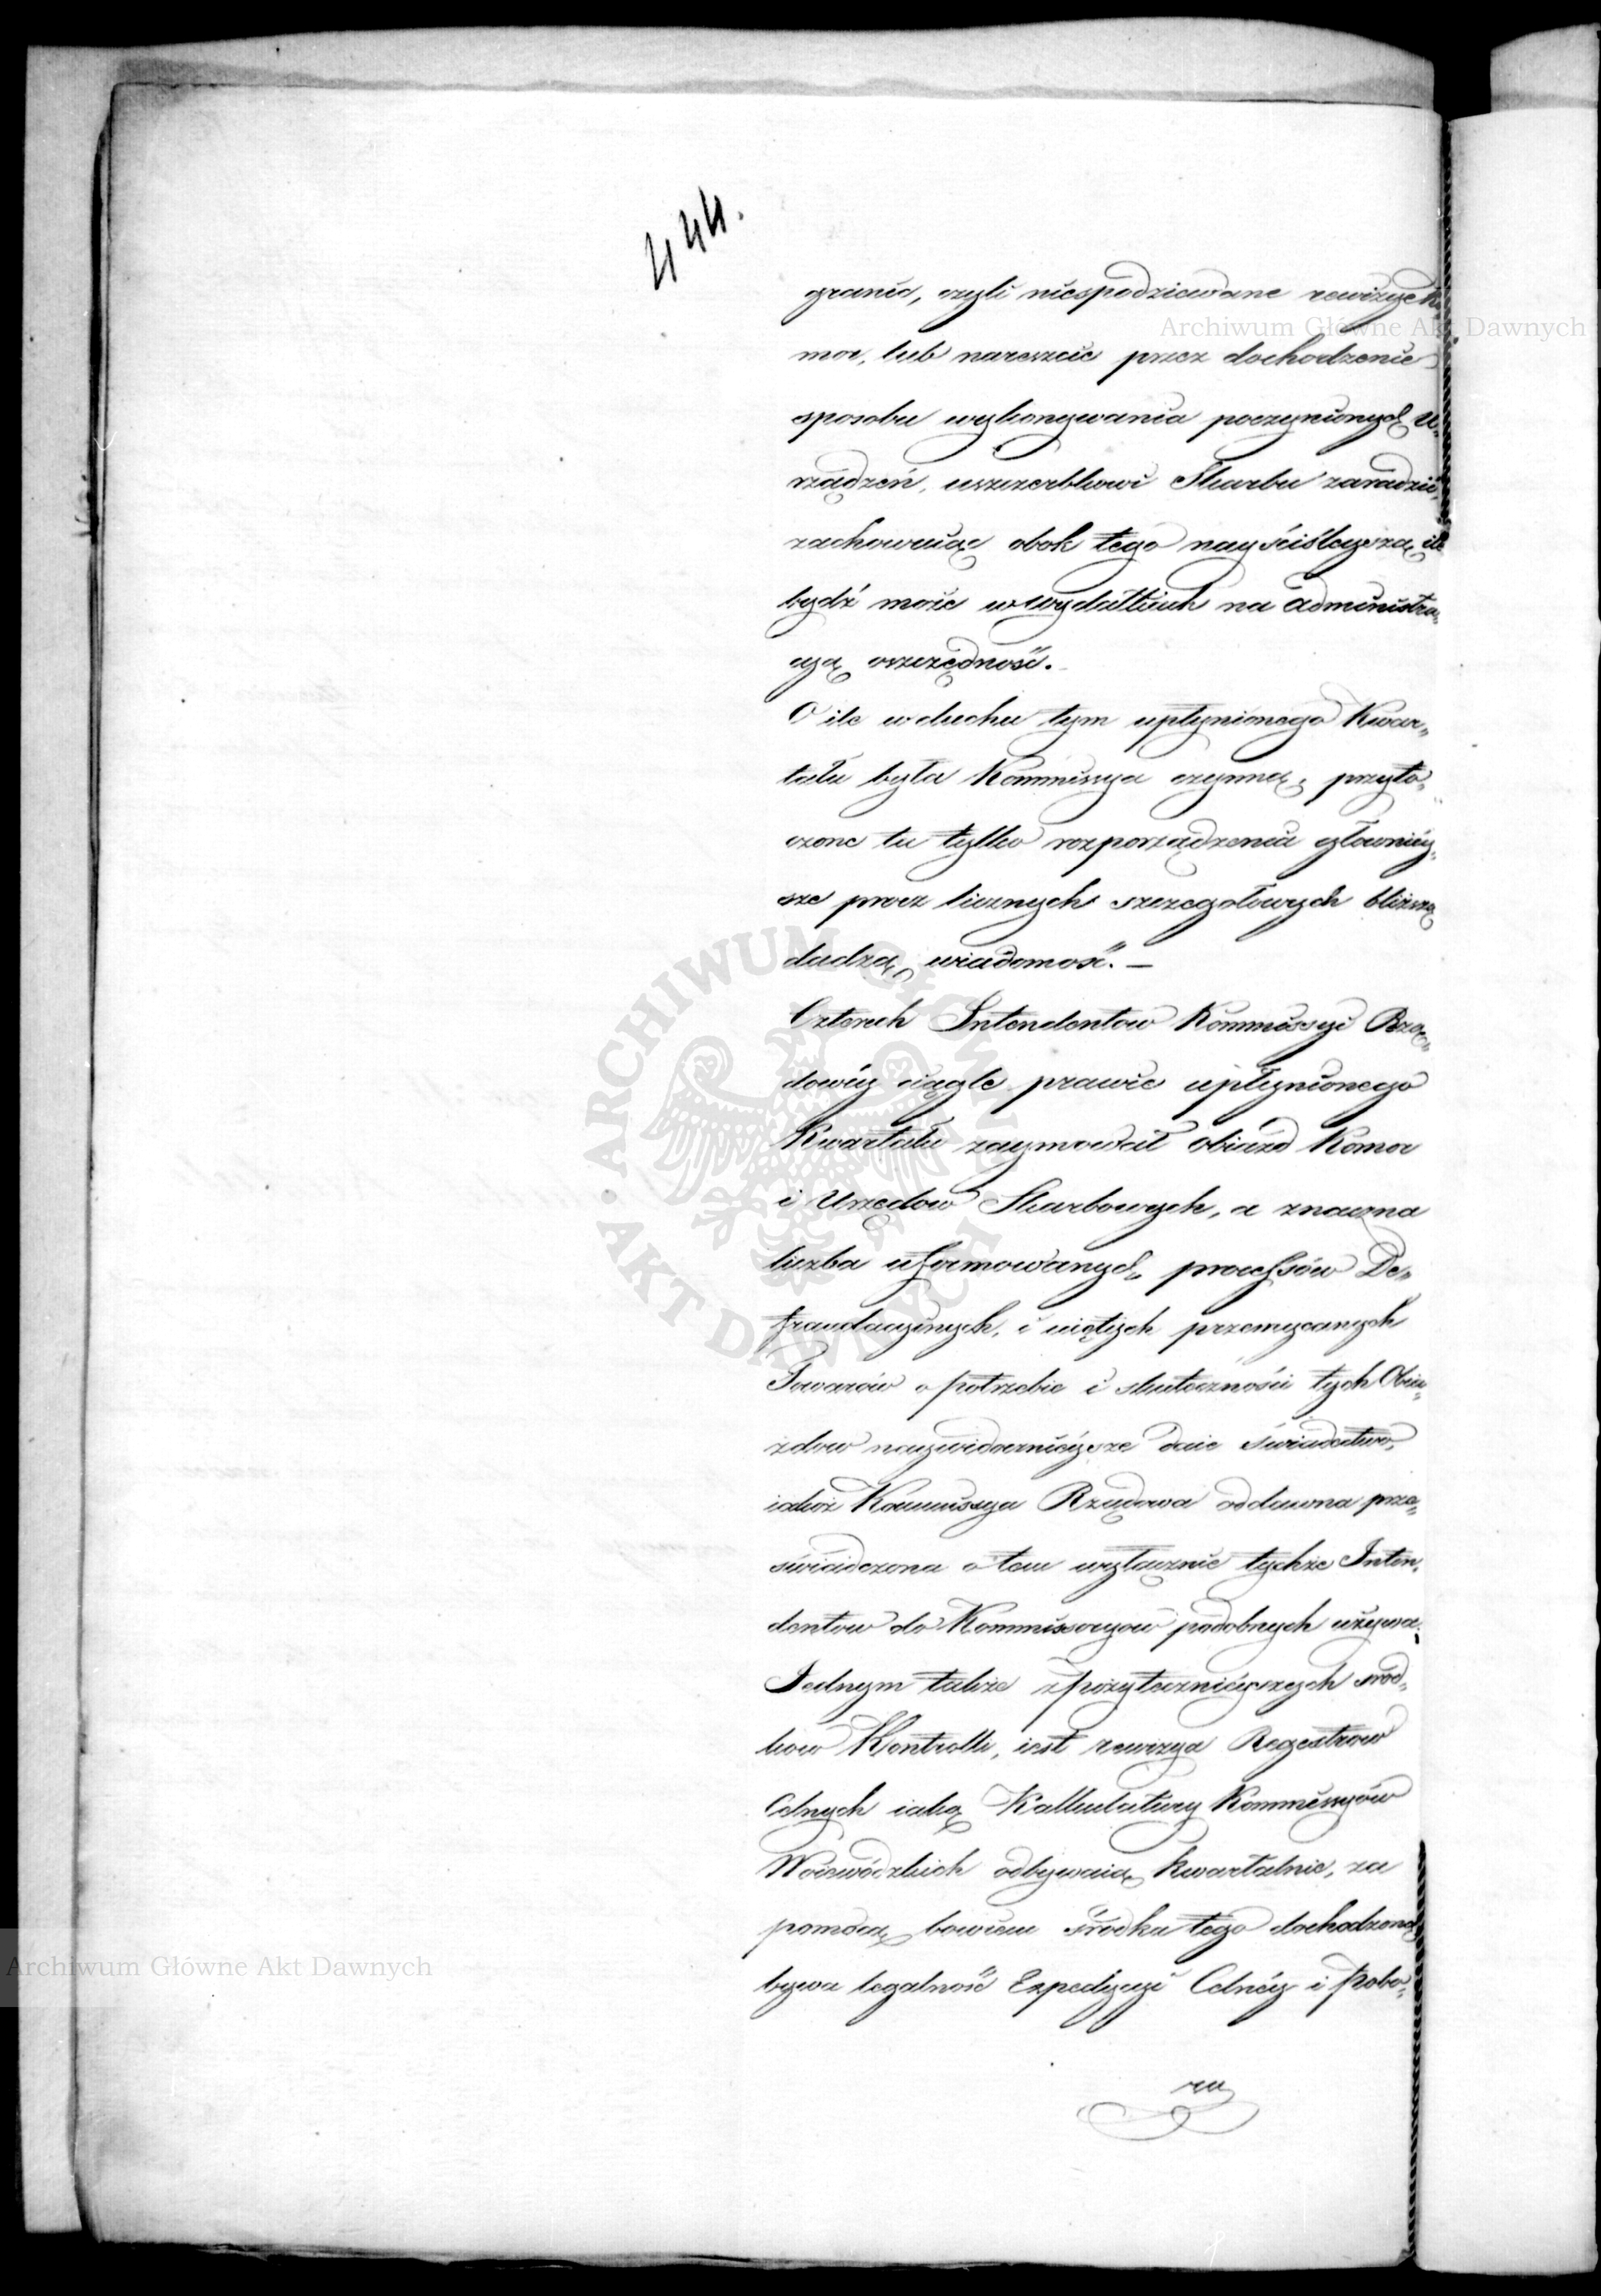 444.
granic, czyli niespodziewane rewizye Ko
mor, lub nareszcie przez dochodzenie
sposobu wykonywania poczynionych U„
rządzeń, uszczerbkowi Skarbu zaradzić,
zachowuiąc obok tego nayściśleyszą ile
bydź może w wydatkach na administra„
cyą oszczędność.
O ile w duchu tym upłynionego Kwar„
tału była Kommissya czynną, przyto„
czone tu tylko rozporządzenia główniey„
sze procz licznych szczegołowych bliższą
dadzą wiadomość. —
Czterech Intendentow Kommissyi Rzą„
dowéy ciągle prawie upłynionego
Kwartału zaymował obiazd Komor
i Urzędow Skarbowych, a znaczna
liczba uformowanych processów De„
fraudacyinych, i uiętych przemycanych
Towarów o potrzebie i skuteczności tych Obia„
zdow naywidocznieysze daie świadectwo,
iakoż Kommissya Rządowa oddawna prze„
świadczona o tem wyłącznie tychże Inten„
dentow do Kommissoryow podobnych używa.
Jednym także z pożytecznieyszych srod„
kow Kontrolli, iest rewizya Regestrow
Celnych iaką Kalkulatury Kommissyów
Woiewódzkich odbywaią kwartalnie, za
pomocą bowiem środka tego dochodzoną
bywa legalność Expedycyi Celnéy i pobo„
ru
Archiwum Główne Akt Dawnych
Archiwum Główne Akt Dawnych
ARCHIWUM GŁÓWNE • AKT DAWNYCH